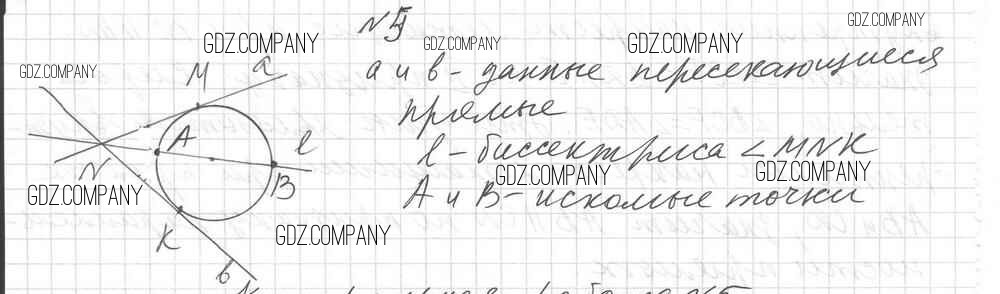 N5
a и b - данные пересекающиеся
прямые
l - биссектриса ∠MNK
A и B - искомые точки
M a
A l
N
B
K
b
GDZ.COMPANY
GDZ.COMPANY
GDZ.COMPANY
GDZ.COMPANY
GDZ.COMPANY
GDZ.COMPANY
GDZ.COMPANY
GDZ.COMPANY
GDZ.COMPANY